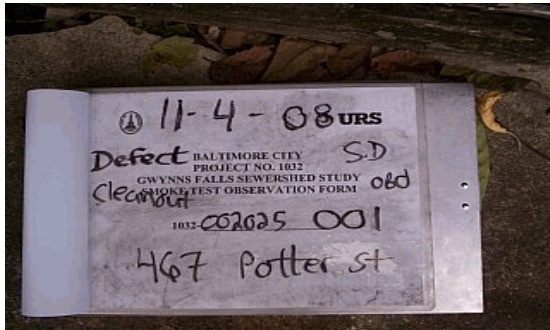 11-4-08 URS
Defect BALTIMORE CITY S.D
PROJECT NO. 1032
GWYNNS FALLS SEWERSHED STUDY
Cleanout SMOKE TEST OBSERVATION FORM obd
1032-002025 001
467 Potter st